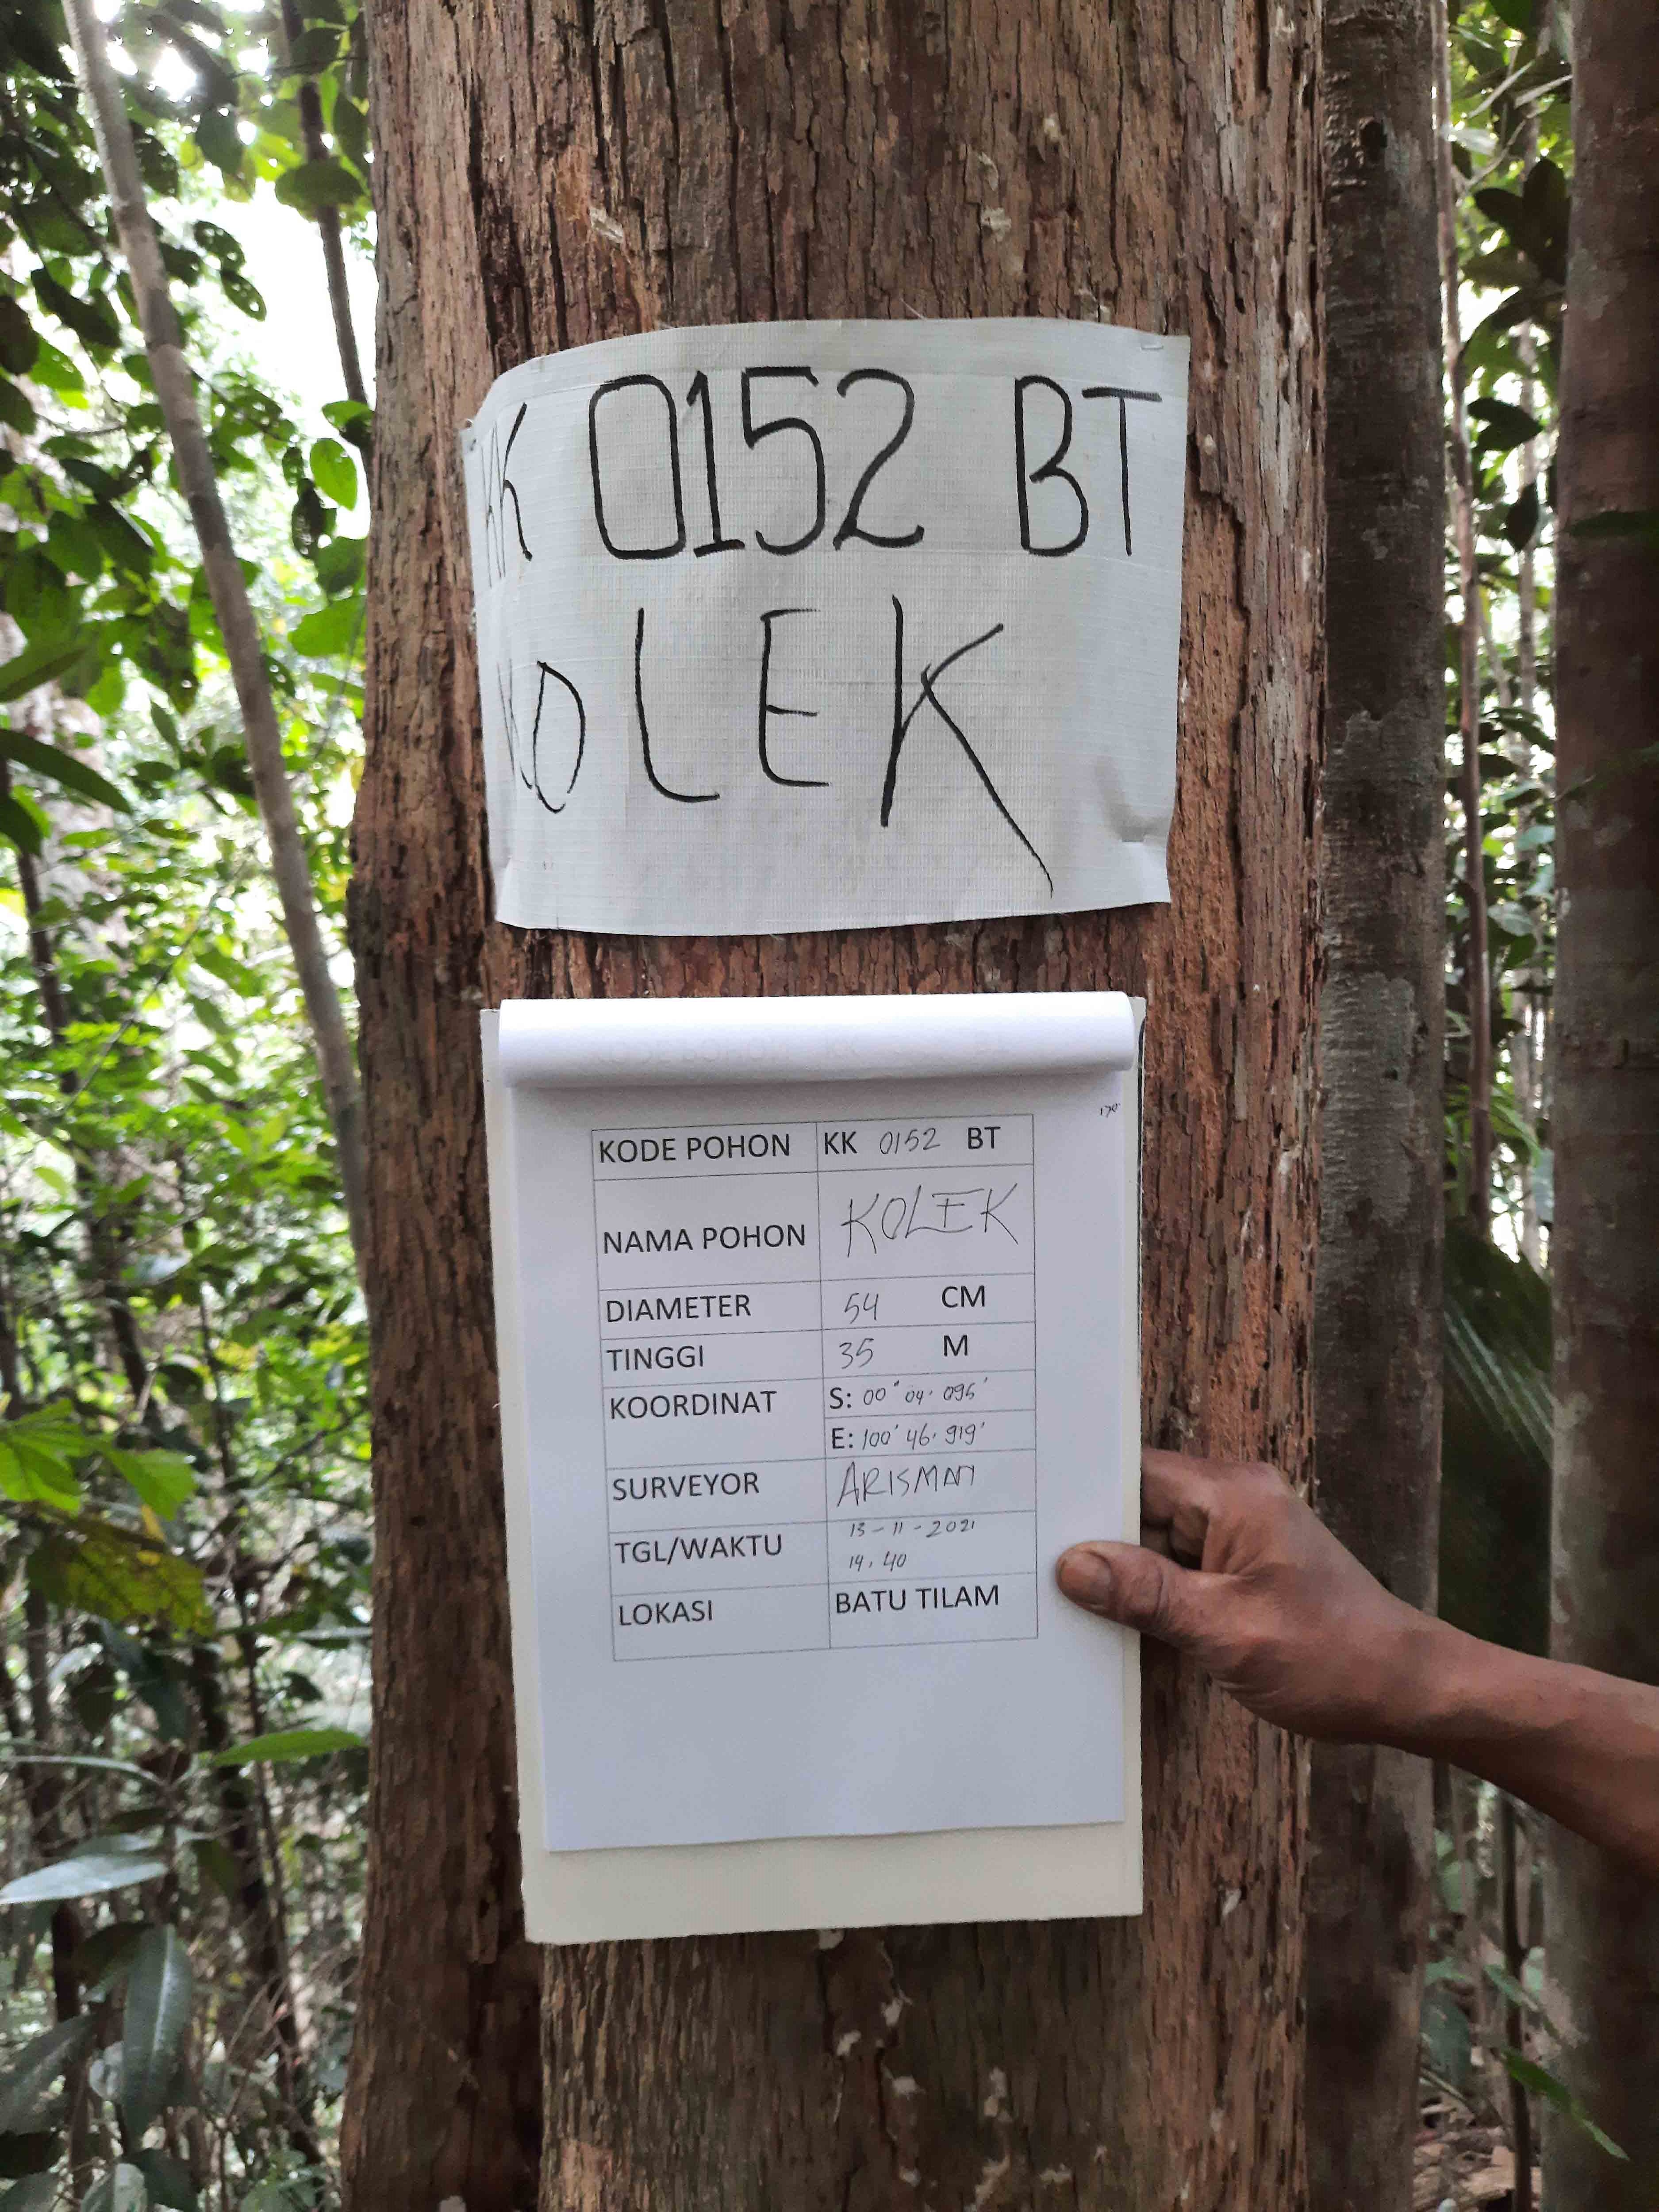 KK 0152 BT
KOLEK
170
KODE POHON KK 0152 BT
NAMA POHON KOLEK
DIAMETER 54 CM
TINGGI 35 M
KOORDINAT S: 00° 04. 095'
E: 100° 46. 919'
SURVEYOR ARISMAN
TGL/WAKTU 13-11-2021
14.40
LOKASI BATU TILAM